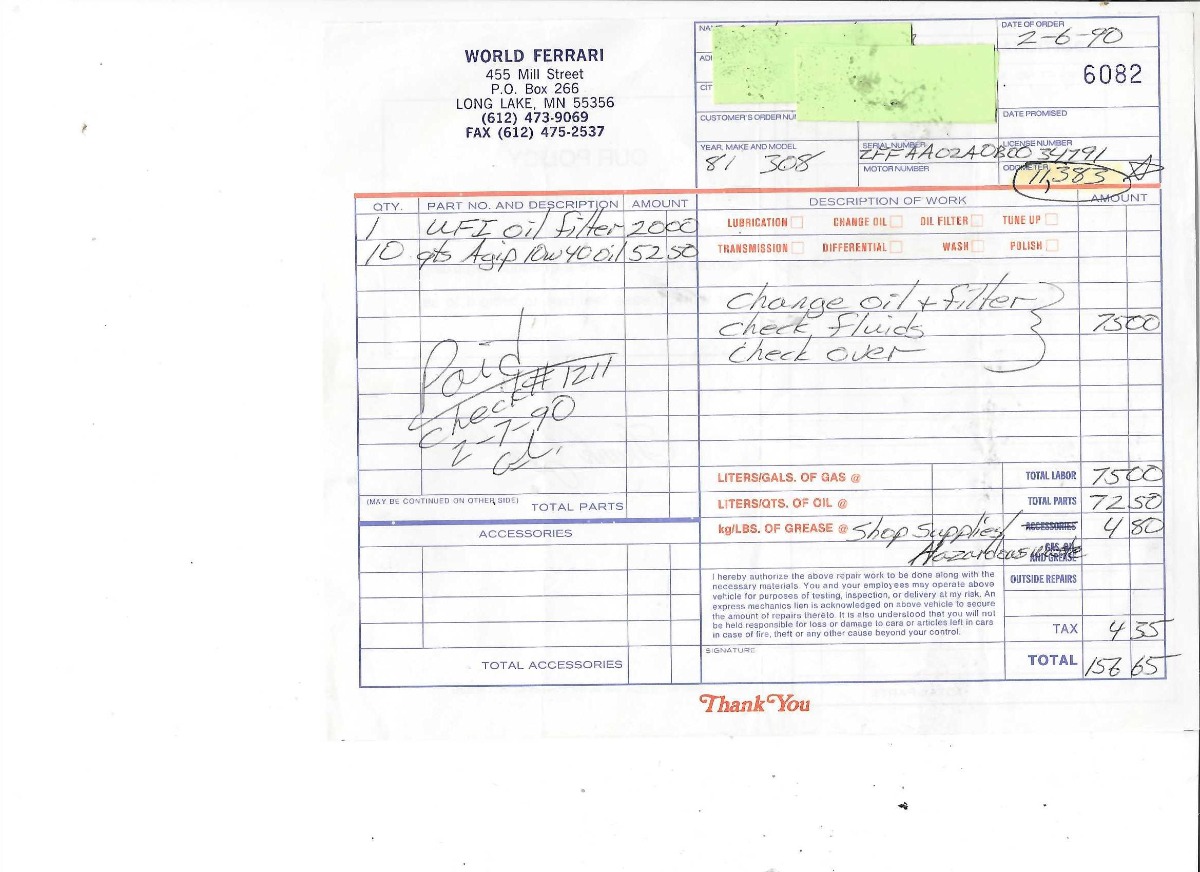 WORLD FERRARI
455 Mill Street
P.O. Box 266
LONG LAKE, MN 55356
(612) 473-9069
FAX (612) 475-2537
DATE OF ORDER
2-6-90
6082
CUSTOMER'S ORDER
DATE PROMISED
YEAR, MAKE AND MODEL
81 308
SERIAL NUMBER
ZFFAA02A0B0034791
LICENSE NUMBER
MOTOR NUMBER
ODOMETER
11,383
QTY. PART NO. AND DESCRIPTION AMOUNT
1 UFI oil filter 2000
10 qts Agip 10w40 oil 5250
Paid
check # 1211
2-7-90
(MAY BE CONTINUED ON OTHER SIDE) TOTAL PARTS
ACCESSORIES
TOTAL ACCESSORIES
DESCRIPTION OF WORK AMOUNT
LUBRICATION CHANGE OIL OIL FILTER TUNE UP
TRANSMISSION DIFFERENTIAL WASH POLISH
Change oil + filter
check fluids 7500
check over
LITERS/GALS. OF GAS @ TOTAL LABOR 7500
LITERS/QTS. OF OIL @ TOTAL PARTS 7250
kg/LBS. OF GREASE @ Shop Supplies/ ACCESSORIES 480
Hazardous waste GAS, OIL AND GREASE
I hereby authorize the above repair work to be done along with the
necessary materials. You and your employees may operate above
vehicle for purposes of testing, inspection, or delivery at my risk. An
express mechanics lien is acknowledged on above vehicle to secure
the amount of repairs thereto. It is also understood that you will not
be held responsible for loss or damage to cars or articles left in cars
in case of fire, theft or any other cause beyond your control.
OUTSIDE REPAIRS
TAX 435
SIGNATURE
TOTAL 156 65
Thank You